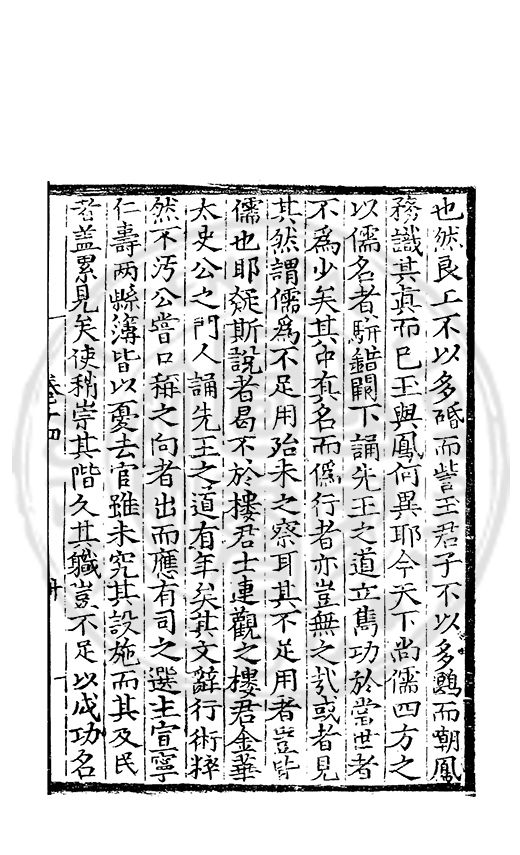 也然良工不以多碈而訾玉君子不以多鷃而嘲鳳
務識其真而已玉與鳳何異耶今天下尚儒四方之
以儒名者駢錯闕下誦先王之道立雋功於當世者
不為少矣其中有名而偽行者亦豈無之哉或者見
其然謂儒為不足用殆未之察耳其不足用者豈皆
儒也耶疑斯說者曷不於樓君士連觀之樓君金華
太史公之門人誦先王之道有年矣其文辭行術粹
然不汚公嘗口稱之向者出而應有司之選主宣寧
仁壽两縣簿皆以憂去官雖未究其設施而其及民
者盖累見矣使稍崇其階久其職豈不足以成功名
卷二十四